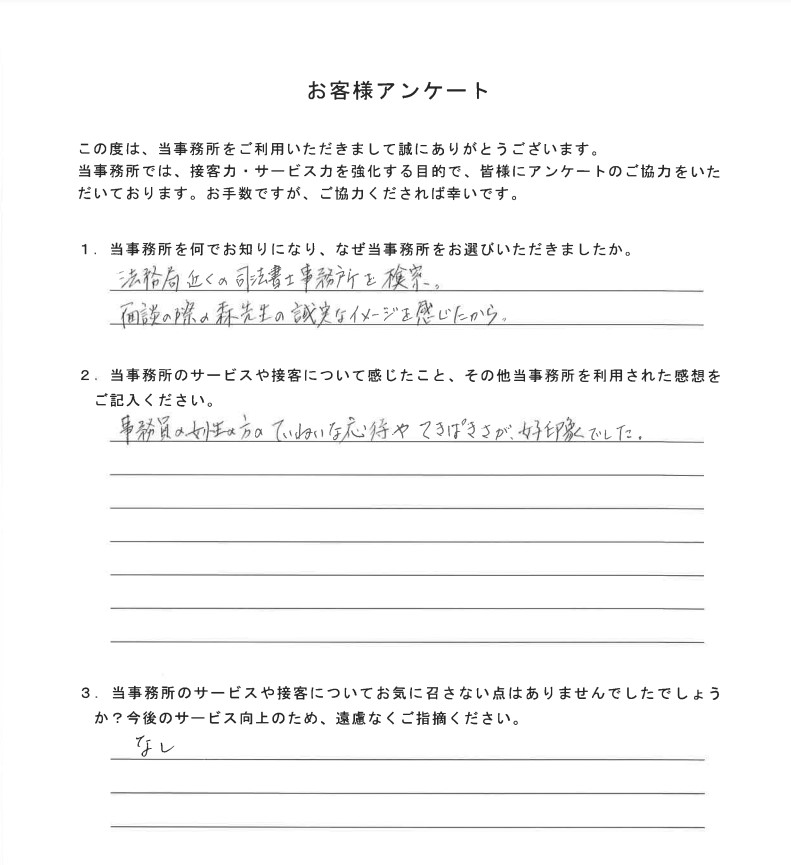 お客様アンケート
この度は、当事務所をご利用いただきまして誠にありがとうございます。
当事務所では、接客力・サービス力を強化する目的で、皆様にアンケートのご協力をいた
だいております。お手数ですが、ご協力くだされば幸いです。
１．当事務所を何でお知りになり、なぜ当事務所をお選びいただきましたか。
法務局近くの司法書士事務所を検索。
面談の際の森先生の誠実なイメージを感じたから。
２．当事務所のサービスや接客について感じたこと、その他当事務所を利用された感想を
ご記入ください。
事務員の女性の方のていねいな応待や てきぱきさが、好印象でした。
３．当事務所のサービスや接客についてお気に召さない点はありませんでしたでしょう
か？今後のサービス向上のため、遠慮なくご指摘ください。
なし